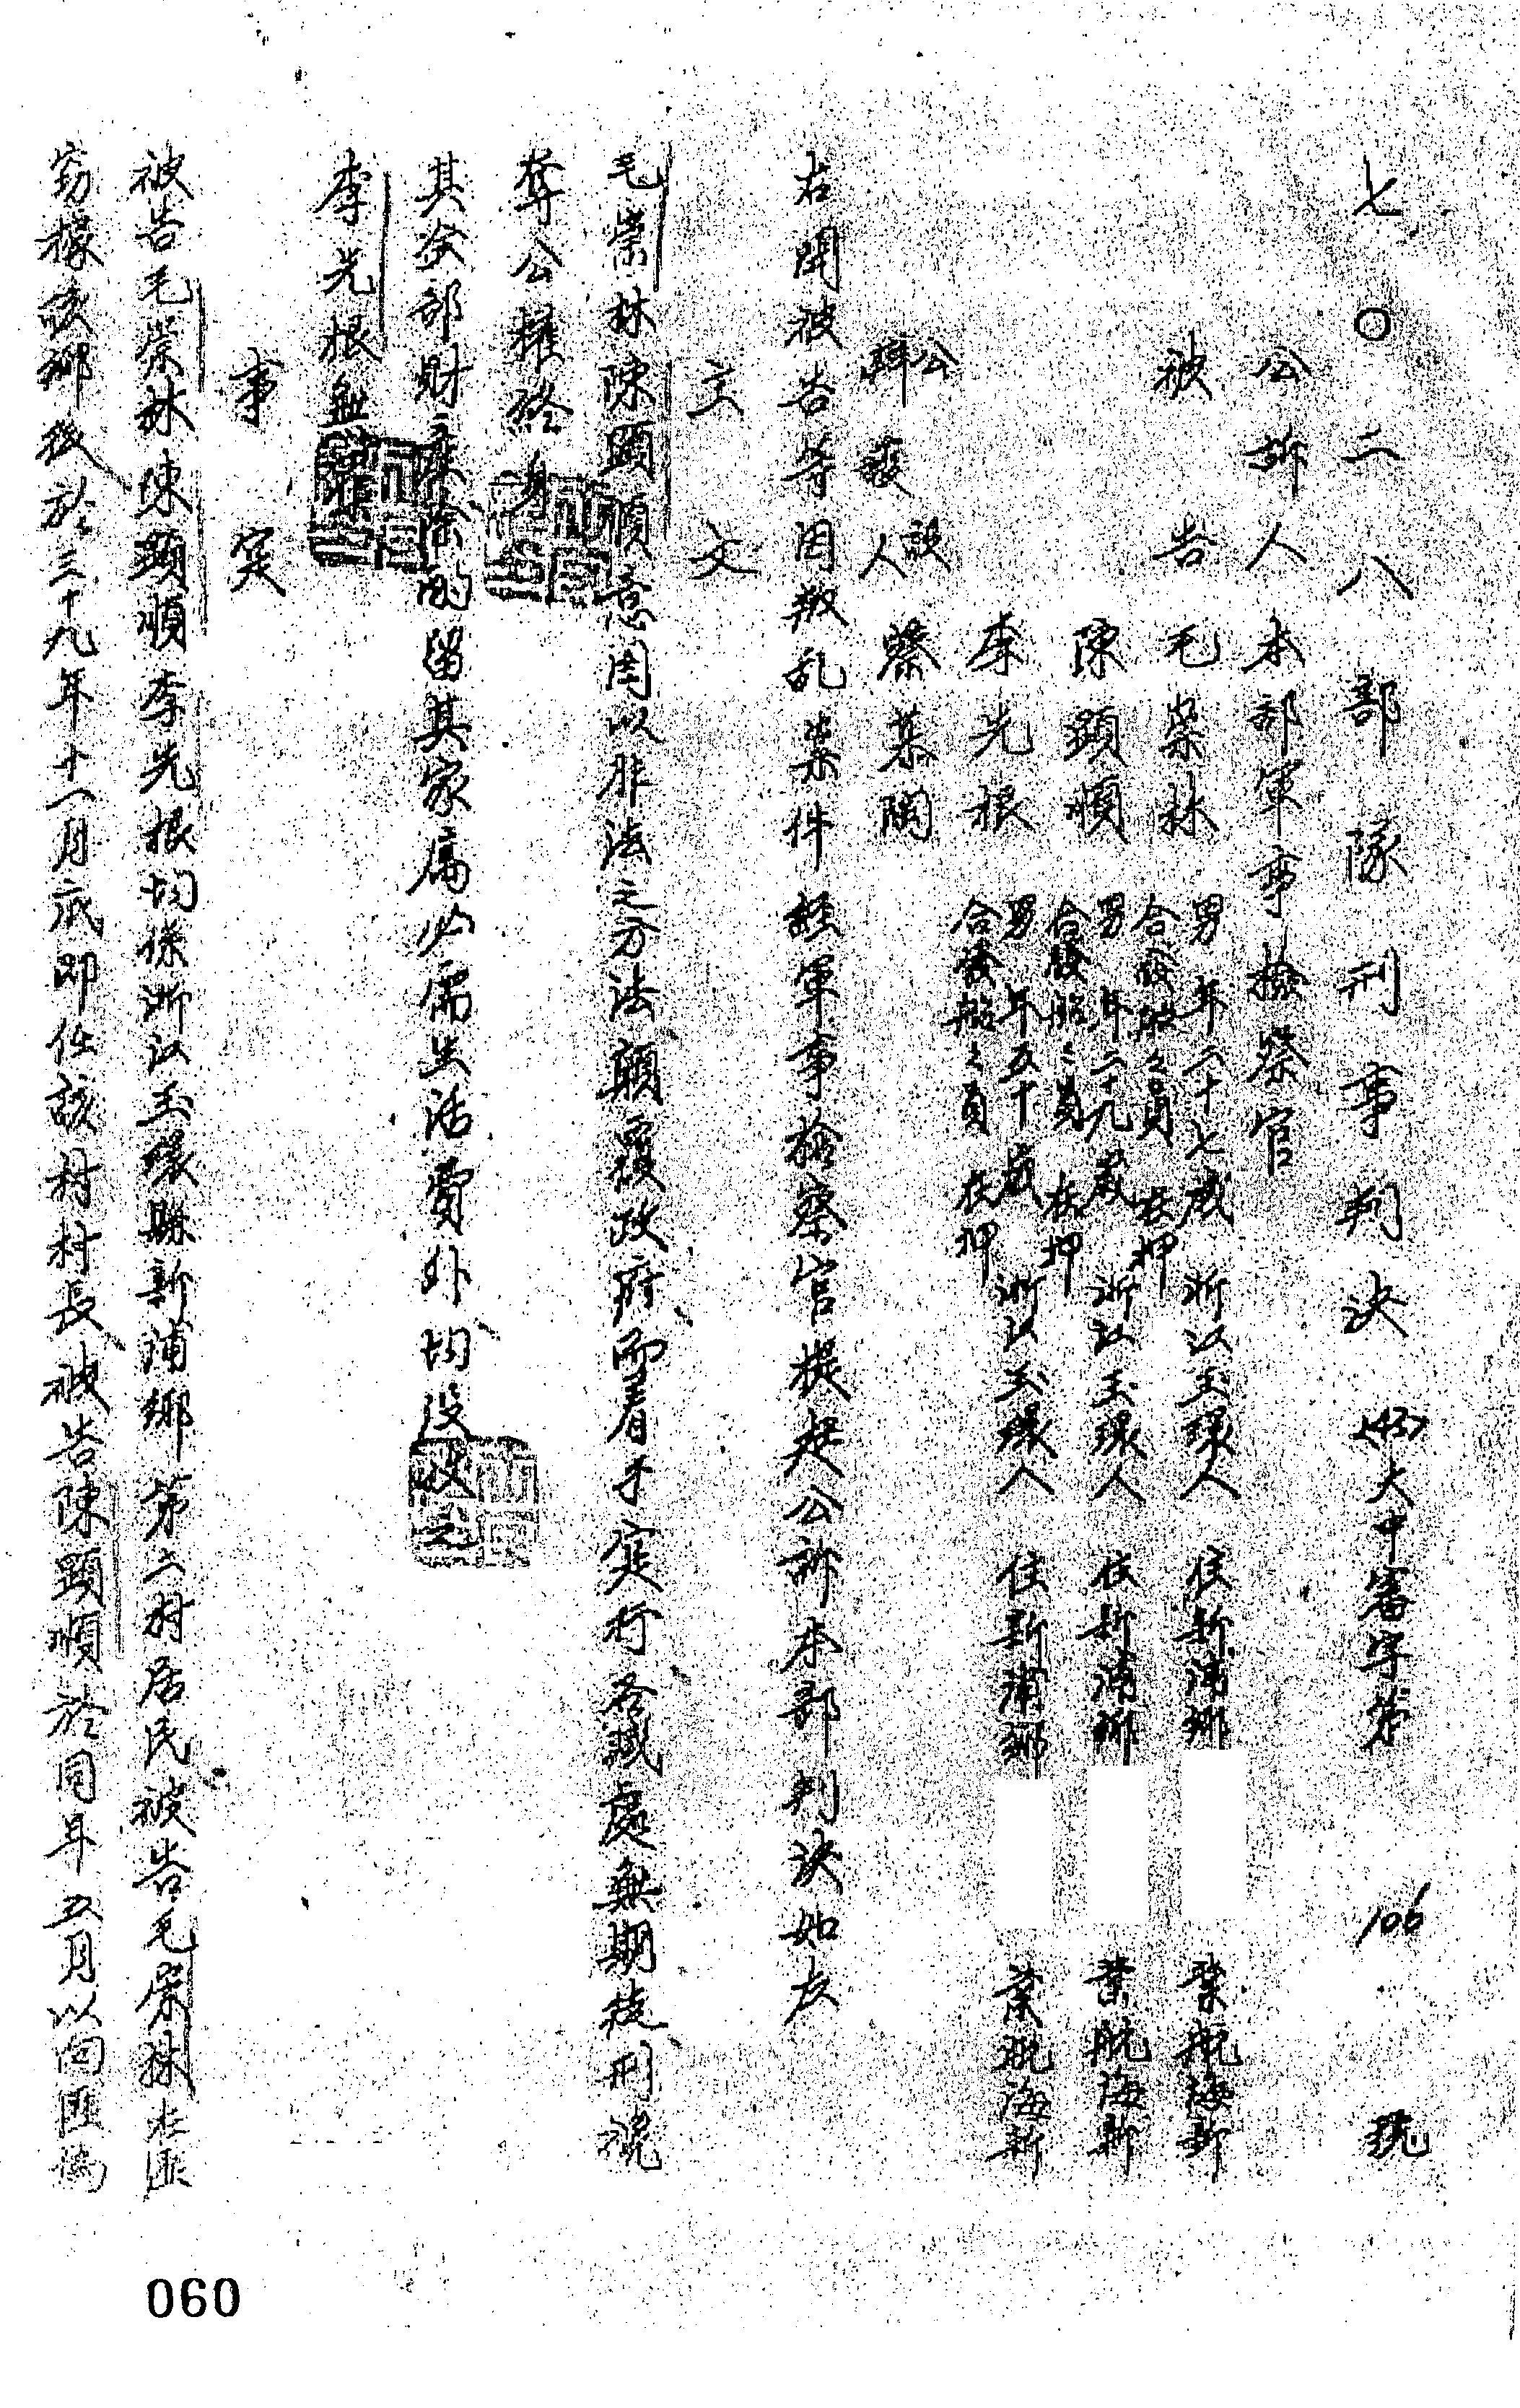 七〇二八部隊刑事判決 (43)大中審字第106號
公訴人 本部軍事檢察官
被告 毛崇林 男年六十七歲 浙江玉環人 住新浦鄉 業航海新
合發船之員 在押
陳顕順 男年二十九歲 浙江玉環人 住新浦鄉 業航海新
合發船之員 在押
李先根 男年五十歲 浙江玉環人 住新浦鄉 業航海新
合發船之員 在押
公設辯護人 蔡慕陶
右開被告等因叛乱案件経軍事檢察官提起公訴本部判決如左
主文
毛崇林陳顕順意圖以非法之方法顛覆政府而着手实行各減處無期徒刑褫
奪公權終身
其全部財產除酌留其家屬必需生活費外均没收之
李先根無罪
事实
被告毛崇林陳顕順李先根均係浙江玉環縣新浦鄉第六村居民被告毛崇林在匪
窃據該鄉後於三十九年十一月底即任該村村長被告陳顕順於同年五月以向匪偽
060